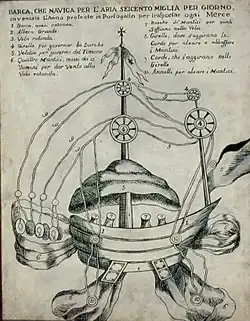 BARCA, CHE NAVICA PER L'ARIA SEICENTO MIGLIA PER GIORNO,
inventata L'Anno presente in Portogallo per traspotar ogni Merce
1. Barca, ouer rotonda.
2. Albero Grande
3. Vela rotonda.
4. Girelle per gouernar la Barcha
5. Vela per gouerno del Timone
6. Quattro Mantici, mossi da 4
Uomini per dar Vento alla
Vela rotonda.
7. Bocche di Mantici per quali
Soffiano nella Vela.
8. Girelle, doue s'aggirano le
Corde per alzare e abbassare
i Mantici.
9. Corde, che s'aggirano nelle
Girelle
10. Annelli per alzare i Mantici.